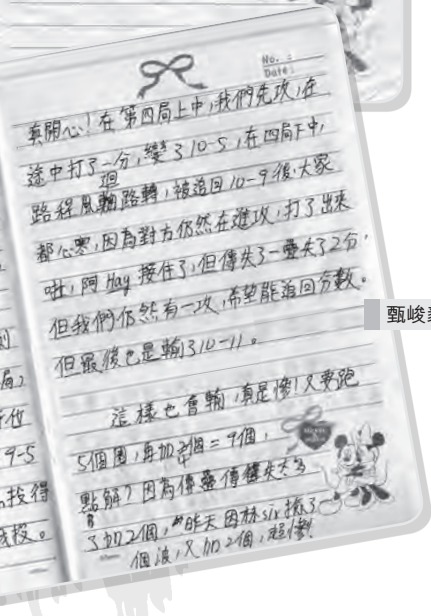 No. :
Date :
真開心!在第四局上中,我們先攻,在
途中打了一分,變了10-5,在四局下中,
路程風迴路轉,被追回10-9後,大家
都心寒,因為對方仍然在進攻,打了出來
啦,阿Hay接住了,但傳失了一壘失了2分,
但我們仍然有一攻,希望能追回分數。
但最後也是輸了10-11。
這樣也會輸,真是慘!又要跑
5個圈,再加4個=9個,
點解?因為傳壘傳失太多
了加2個,昨天因林sir掉了
個波,又加2個,超慘!
局2
9-5
投得
投。
甄峻